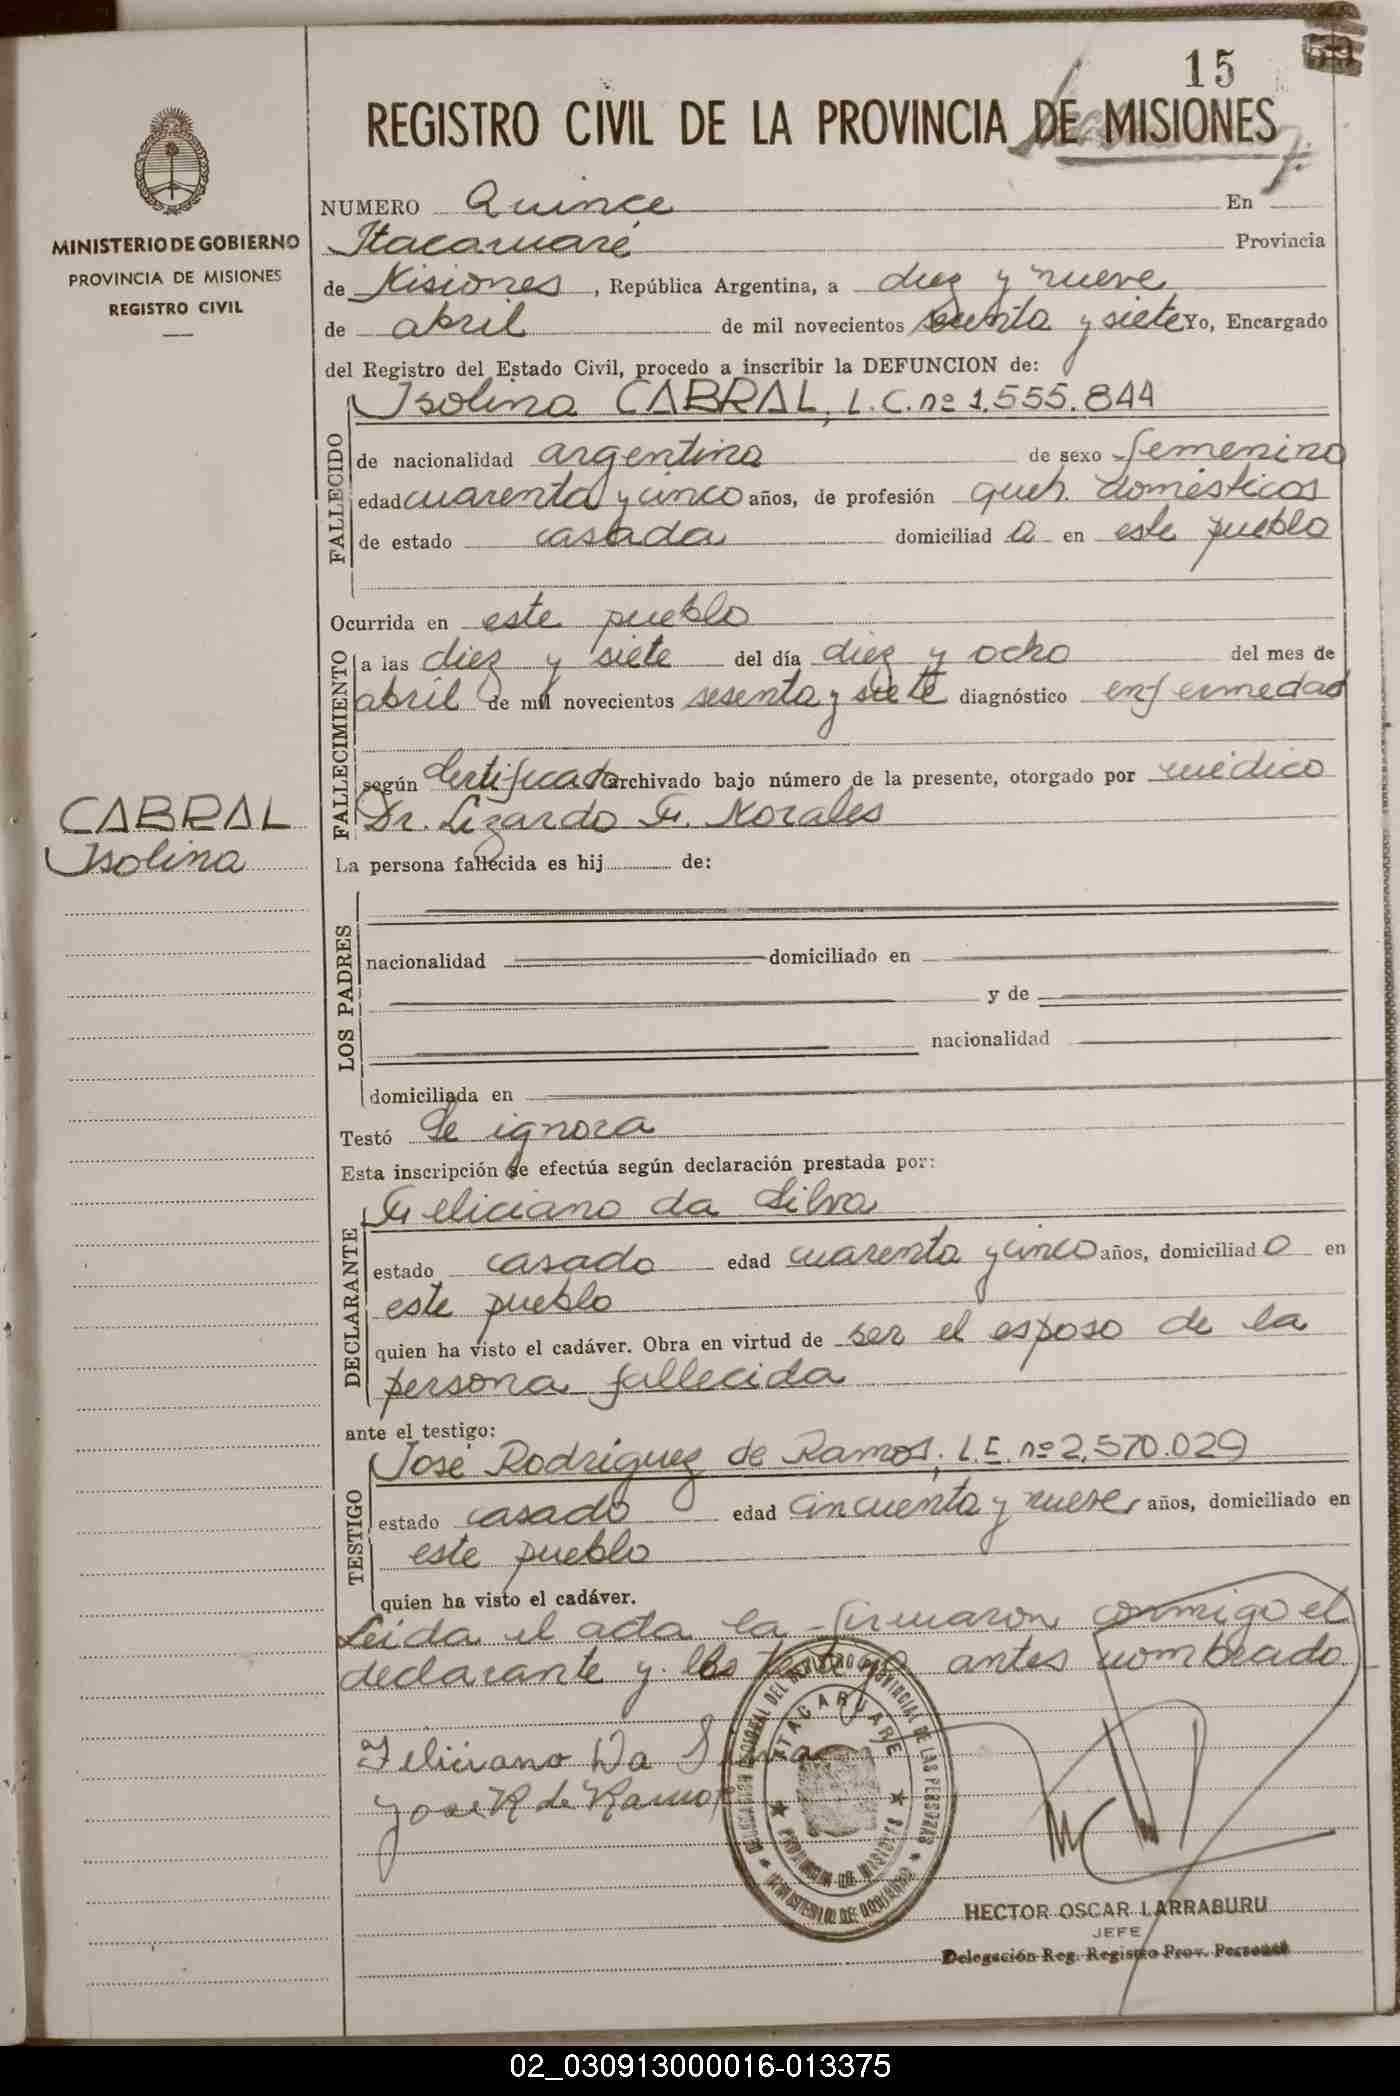 15
REGISTRO CIVIL DE LA PROVINCIA DE MISIONES
MINISTERIO DE GOBIERNO
PROVINCIA DE MISIONES
REGISTRO CIVIL
NUMERO Quince En
Itacaruaré Provincia
de Misiones, República Argentina, a diez y nueve
de abril de mil novecientos sesenta y siete Yo, Encargado
del Registro del Estado Civil, procedo a inscribir la DEFUNCION de:
Isolina CABRAL, L.C. nº 1.555.844
FALLECIDO
de nacionalidad argentina de sexo femenino
edad cuarenta y cinco años, de profesión queh. domésticos
de estado casada domiciliad a en este pueblo
Ocurrida en este pueblo
FALLECIMIENTO
a las diez y siete del día diez y ocho del mes de
abril de mil novecientos sesenta y siete diagnóstico enfermedad
según certificado archivado bajo número de la presente, otorgado por médico
Dr. Lizardo F. Morales
CABRAL
Isolina
La persona fallecida es hij de:
LOS PADRES
nacionalidad domiciliado en
y de
nacionalidad
domiciliada en
Testó Se ignora
Esta inscripción se efectúa según declaración prestada por:
Feliciano da Silva
DECLARANTE
estado casado edad cuarenta y cinco años, domiciliad o en
este pueblo
quien ha visto el cadáver. Obra en virtud de ser el esposo de la
persona fallecida
ante el testigo:
José Rodriguez de Ramos, L.E. nº 2.570.029
TESTIGO
estado casado edad cincuenta y nueve años, domiciliado en
este pueblo
quien ha visto el cadáver.
Leida el acta la firmaron conmigo el
declarante y testigo antes nombrado
Feliciano Da Silva
José R de Ramos
ITACARUARE
PROVINCIA DE MISIONES
HECTOR OSCAR LARRABURU
JEFE
Delegación Reg. Registro Prov. Personas
02_030913000016-013375